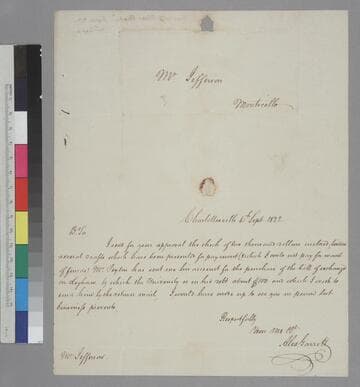 Mr Jefferson
Monticello
Charlottesville 6th Sept. 1822
Dr Sir
I send for your approval the check of two thousand dollars inclosed,
several drafts which have been presented for payment (& which I could not pay for want
of funds) Mr Peyton has sent me his account for the purchase of the bill of exchange
on by which the University is in his debt about $ and which I wish to
send him by the return mail. I would have rode up to see you in person but
business prevents
Respectfully
Your Mo. Obt.
Alex: Garrett
Mr Jefferson